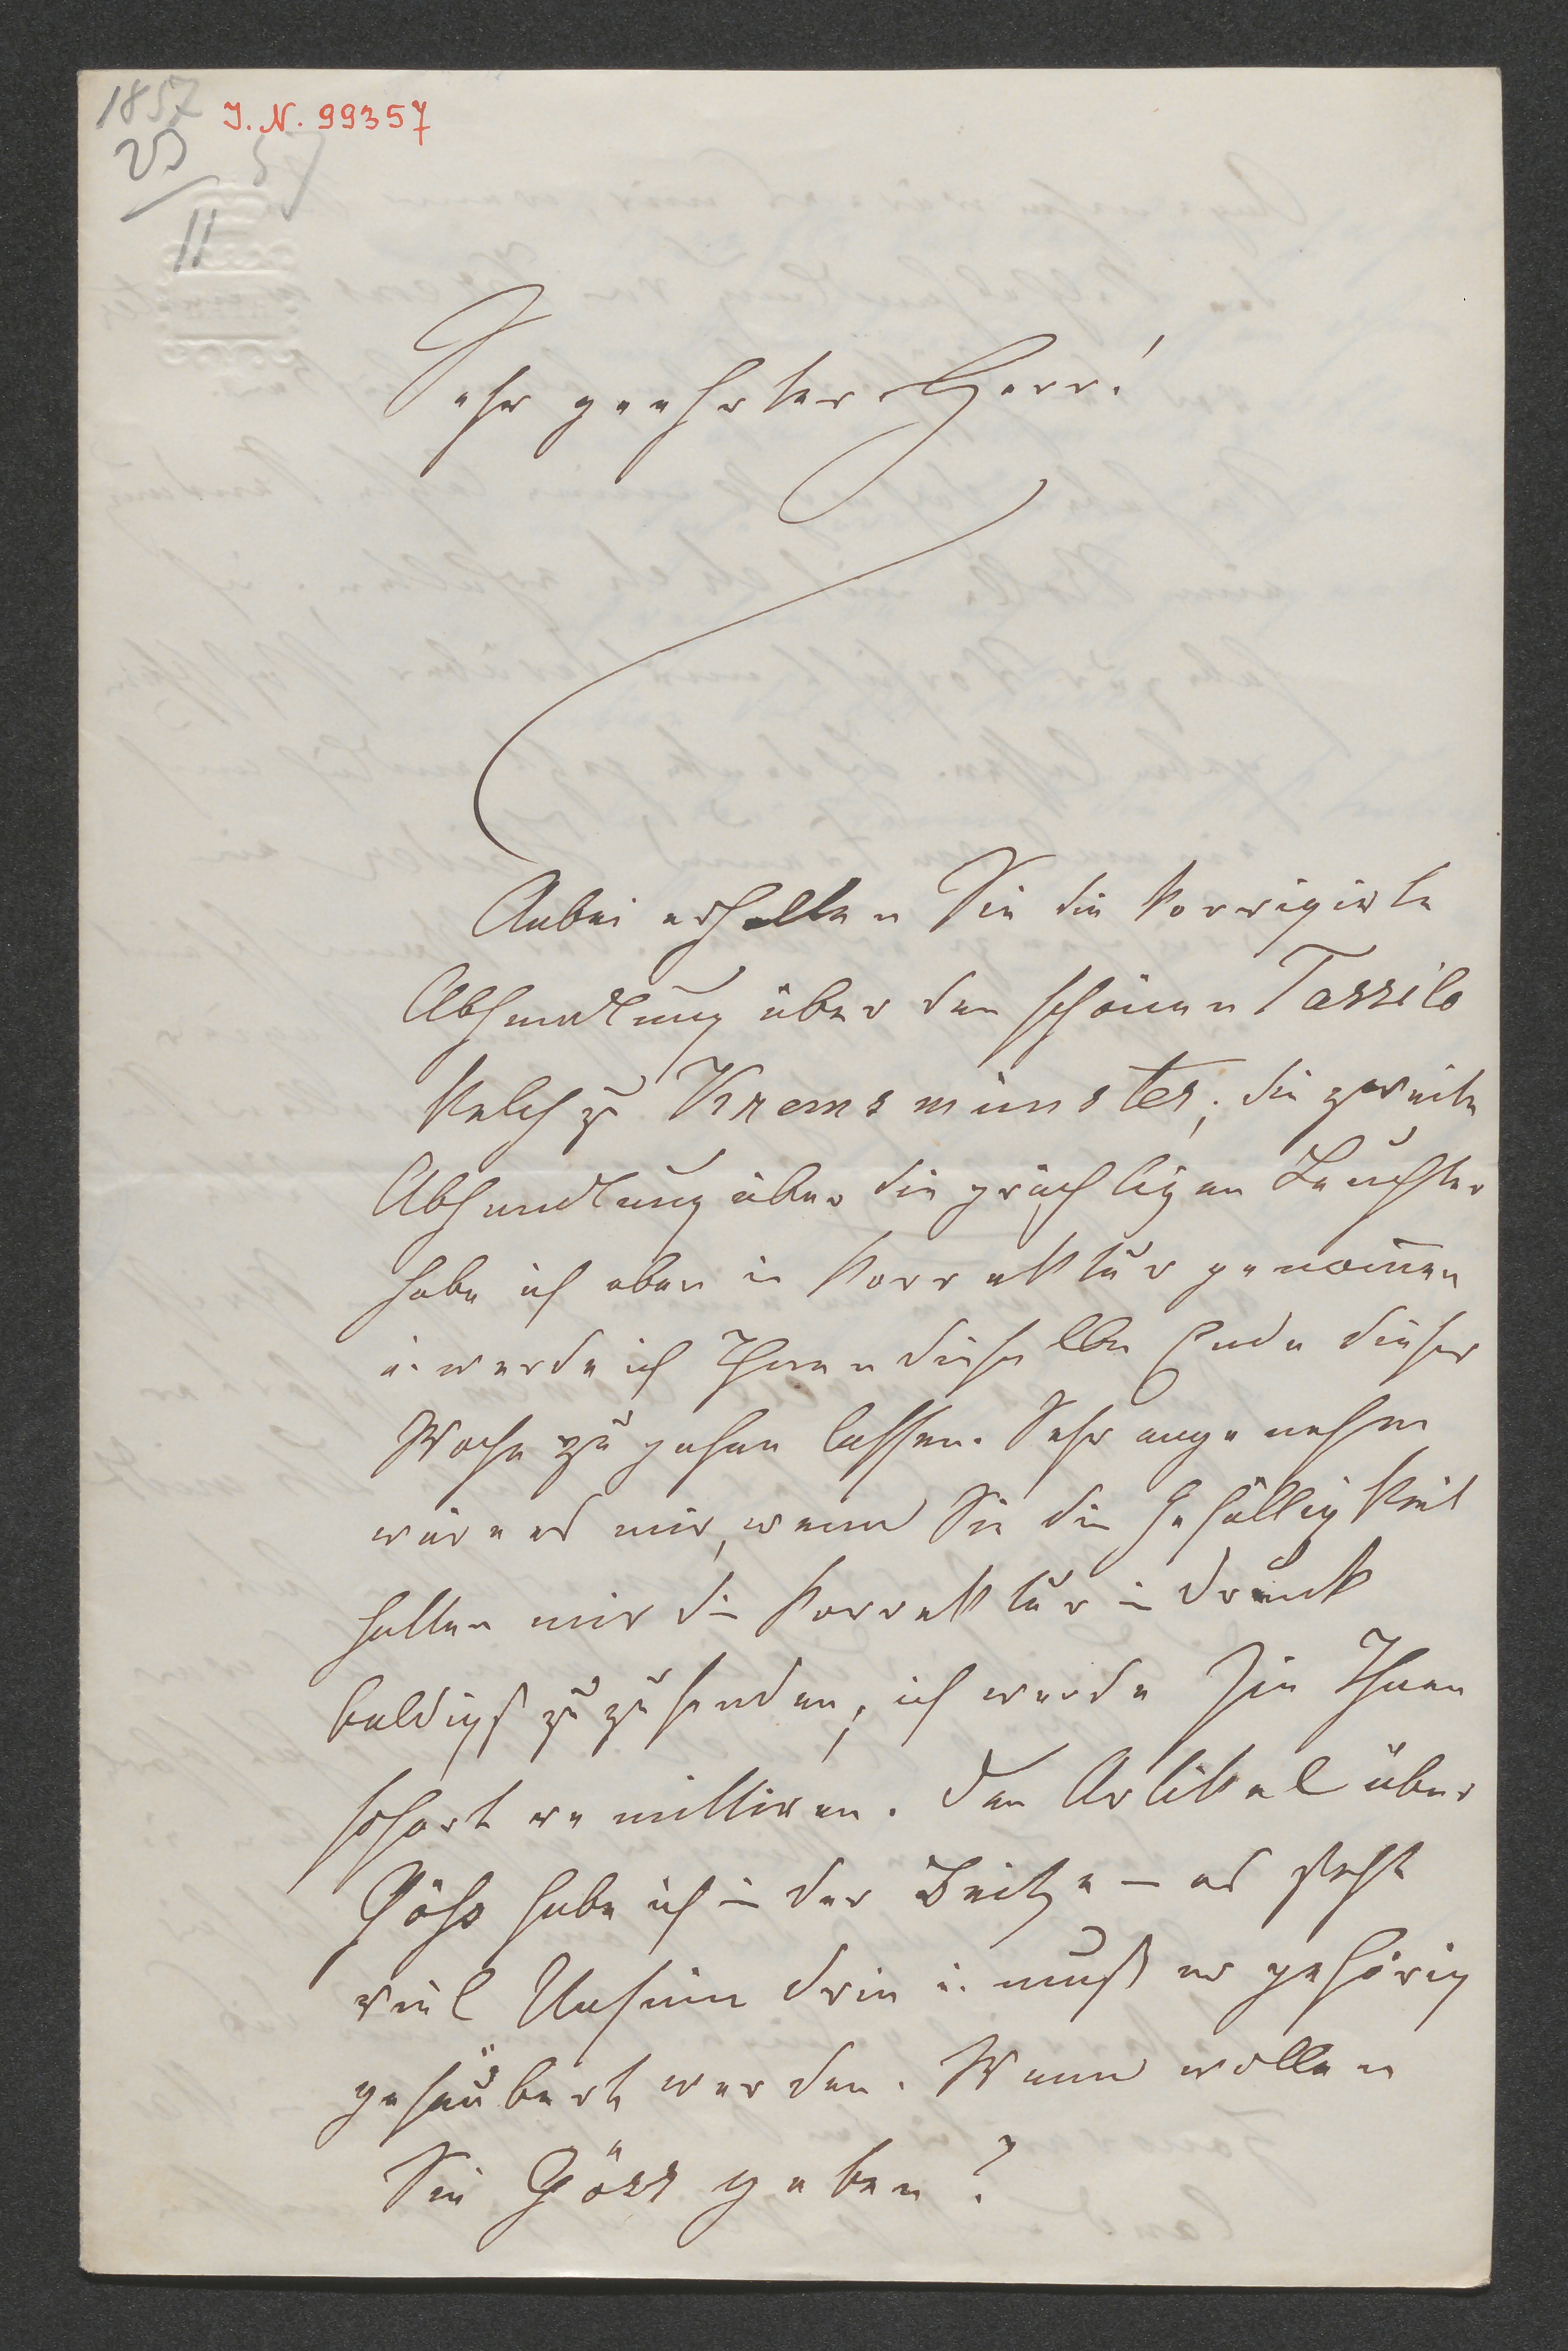 1857
I. N. 99357
23
57
11
Sehr geehrter Herr!
Anbei erhalten Sie die korrigirte
Abhandlung über den schönen Tassilo
kelch zu Kremsmünster; die zweite
Abhandlung über die prächtigen Leuchter
habe ich eben in Korrektur genom̄en
u. werde ich Ihnen dieselbe Ende dieser
Woche zugehen lassen. Sehr angenehm
wäre es mir, wenn Sie die Gefälligkeit
hätten mir die Korrektur in Druck
baldigst zuzusenden; ich werde sie Ihnen
sofort remittiren. Den Artikel über
Göss habe ich in der Beitze – es steht
viel Unsinn drin u. muß er gehörig
gesäubert werden. Wann wollen
Sie Göss geben?